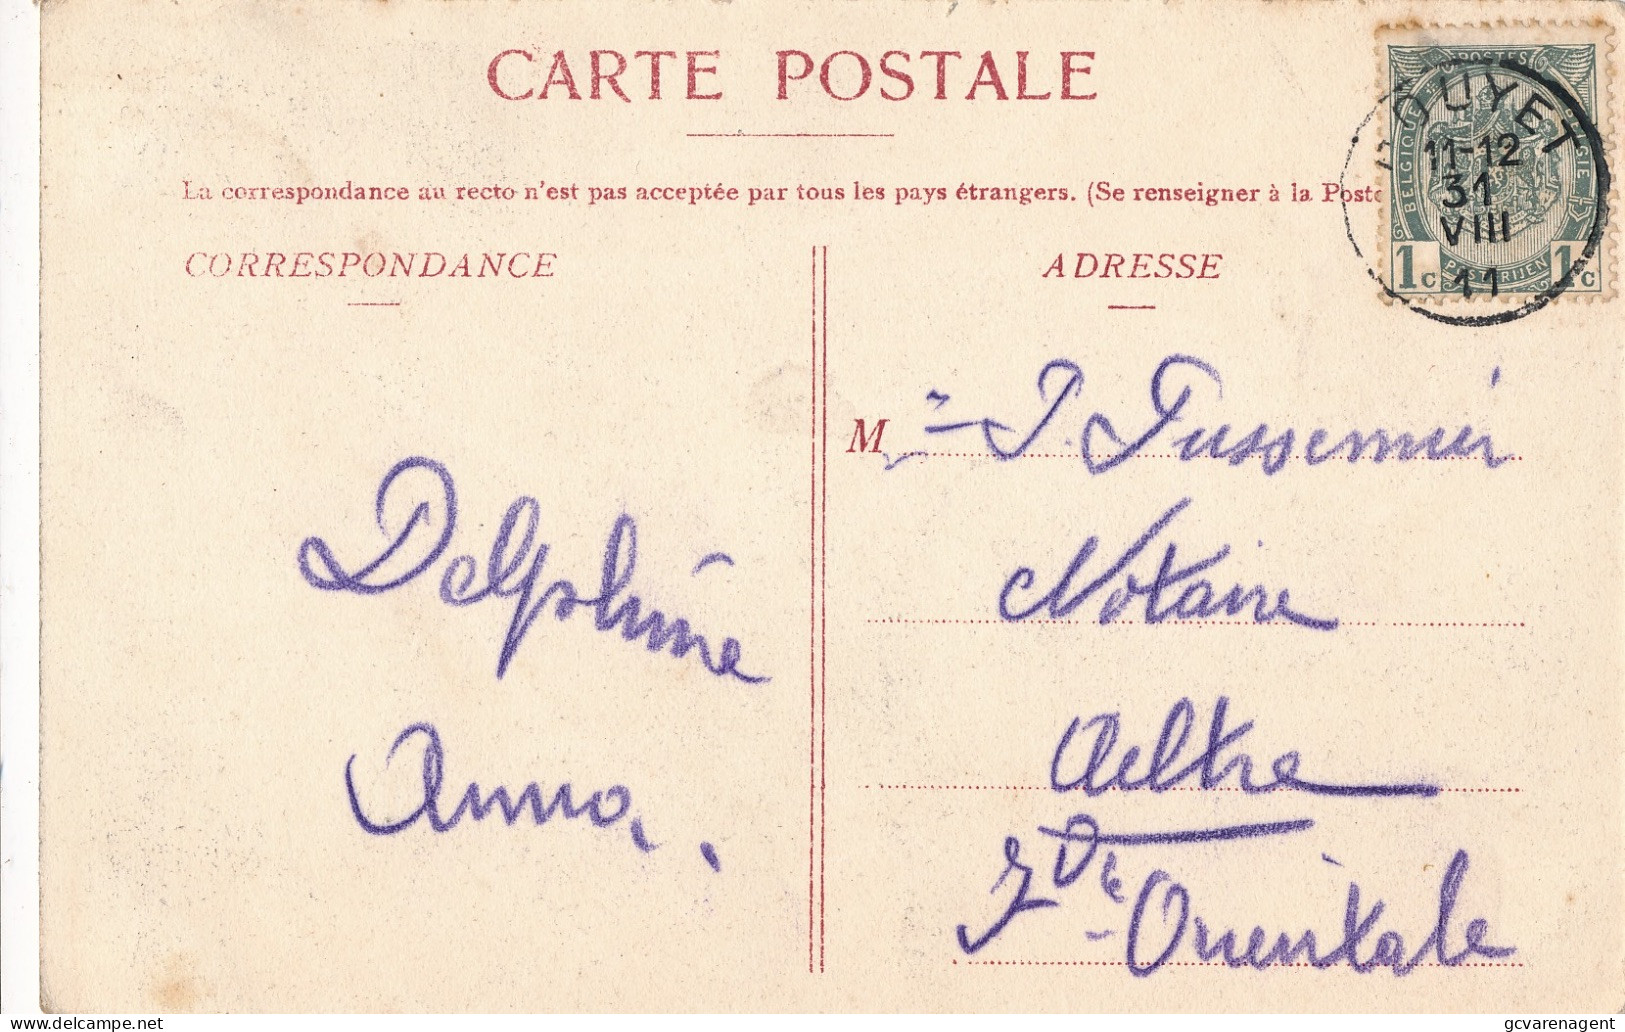 CARTE POSTALE
La correspondance au recto n'est pas acceptée par tous les pays étrangers. (Se renseigner à la Poste
CORRESPONDANCE
ADRESSE
POSTES
BELGIQUE
BELGIË
1c
POSTERIJEN
1c
HOUYET
11-12
31
VIII
11
M J. Fussemier
Notaire
Aeltre
Orientale
Delphine
Anna.
gcvarenagent